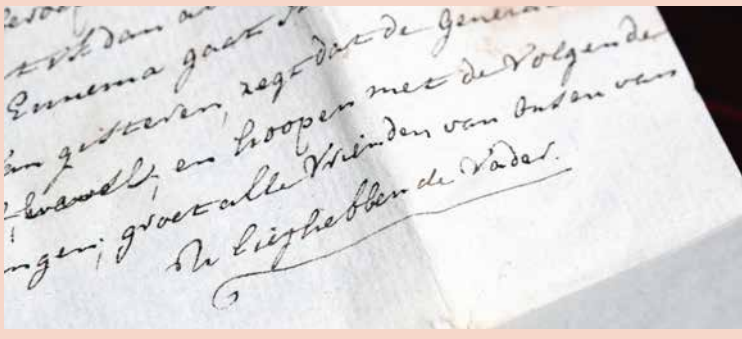 dan
Ennema gaet
gisteren, zegt dat de Genera
en hoopen met de Volgende
ngen; groet alle Vrienden van onsen van
U liefhebbende Vader.